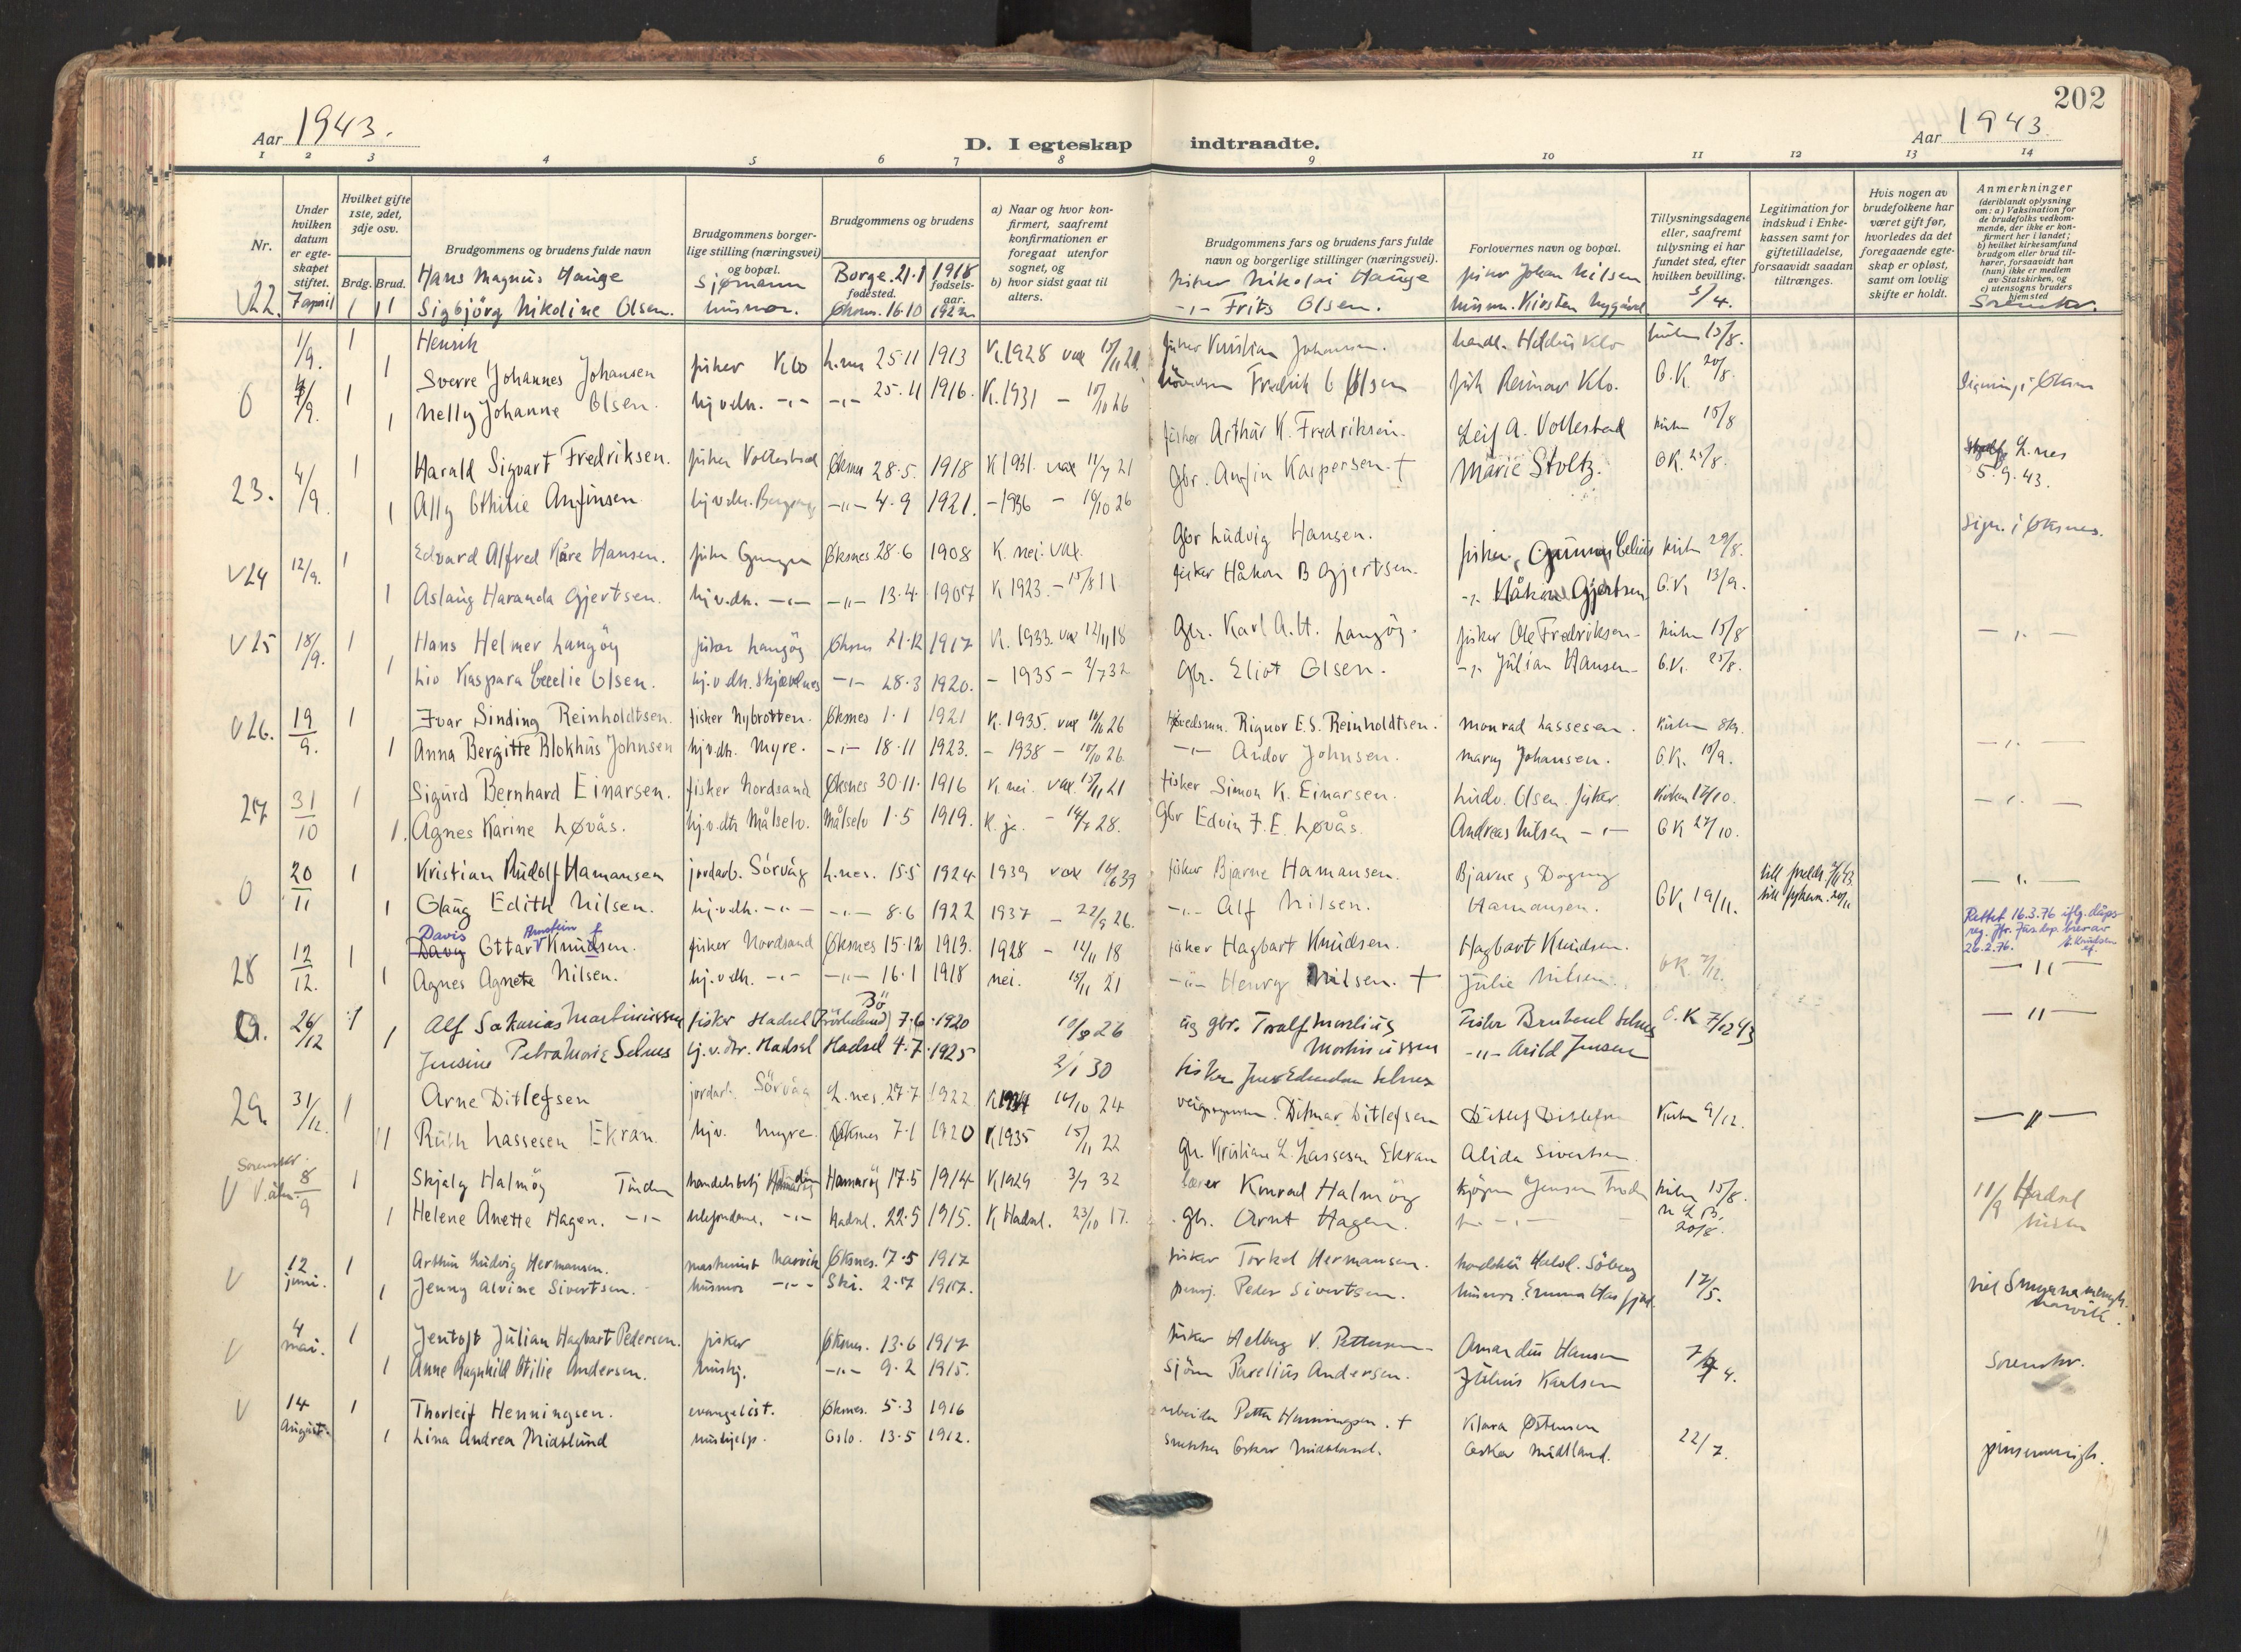 202
Aar 1943.
D. I egteskap indtraadte.
Aar 1943.
1 2 3 4 5 6 7 8 9 10 11 12 13 14
Nr.
Under hvilken datum er egteskapet stiftet.
Hvilket gifte 1ste, 2det, 3dje osv.
Brdg. Brud.
Brudgommens og brudens fulde navn
Brudgommens borgerlige stilling (næringsvei) og bopæl.
Brudgommens og brudens
fødested. fødselsaar.
a) Naar og hvor konfirmert, saafremt konfirmationen er foregaat utenfor sognet, og
b) hvor sidst gaat til alters.
Brudgommens fars og brudens fars fulde navn og borgerlige stillinger (næringsvei).
Forlovernes navn og bopæl.
Tillysningsdagene eller, saafremt tillysning ei har fundet sted, efter hvilken bevilling.
Legitimation for indskud i Enkekassen samt for giftetilladelse, forsaavidt saadan tiltrænges.
Hvis nogen av brudefolkene har været gift før, hvorledes da det foregaaende egteskap er opløst, samt om lovlig skifte er holdt.
Anmerkninger (deriblandt oplysning om: a) Vaksination for de brudefolks vedkommende, der ikke er konfirmert her i landet; b) hvilket kirkesamfund brudgom eller brud tilhører, forsaavidt han (hun) ikke er medlem av Statskirken, og c) utensogns bruders hjemsted
Hans Magnus Hauge sjømann Borge 21.1 1918 fisker Nikolai Hauge fisker Johan Nilsen
V22. 7 april 1 1 Sigbjörg Nikoline Olsen. husmor. Øksnes. 16.10 1922 -"- Frits Olsen. Kirsten Nygård 3/4. Sorenskr.
1/9. 1 Henrik
Sverre Johannes Johansen fisker Klo L.nes 25.11 1913 K. 1928 vax fisker Kristian Johansen. Klo kirken 15/8.
0 4/9. 1 1 Nelly Johanne Olsen. hj.v.dh. -"- -"- 25.11 1916. K. 1931 - 15/10 26 Fredrik Olsen Reinar Klo. O.K. 20/8.
23. 4/9. 1 Harald Sigvart Fredriksen. fisker Vollestad Øksnes 28.5. 1918 K 1931. vax 11/7 21 fisker Arthur K. Fredriksen. Leif A. Vollestad kirken 15/8 L.nes 5.9.43.
1 Ally Othilie Anfinsen hj.v.dh. -"- 4.9 1921. -1936 - 19/10 26 Gbr. Anfin Kaspersen. † Marie Stoltz. OK. 25/8.
V24 12/9. 1 Edvard Alfred Kåre Hansen. fisker Øksnes 28.6 1908 K. nei. vax. Gbr Ludvig Hansen. fisker kirken 29/8. Sign. i Øksnes.
1 Aslaug Haranda Gjertsen. hj.v.dh. -"- -"- 13.4. 1907 K 1923. - 15/8 11 fisker Håkon B Gjertsen. -"- Håkon Gjertsen. O.K. 13/9.
V25 18/9. 1 Hans Helmer Langöy fisker Langöy Øksnes 21.12 1917 K. 1933. vax 12/11 18 Gbr. Karl A.H. Langöy. fisker Ole Fredriksen - kirken 15/8 - " -
1 Liv Kaspara Cecelie Olsen. hj.v.dh. Skjævelnes -"- 28.3 1920. - 1935 - 2/7 32 Gbr. Eliot Olsen. -"- Julian Hansen - O.K. 25/8.
V26. 19/9. 1 Ivar Sinding Reinholdtsen. fisker Nybrotten. Øksnes 1.1 1921 K. 1935. vax 10/11 26 Høvedsmn. Rignor E.S. Reinholdtsen. Monrad Lassesen. kirken - " -
1 Anna Bergitte Blokhus Johnsen hj.v.dh. Myre. -"- 18.11 1923. - 1938 - 10/10 26. -"- Andor Johnsen. Mary Johansen. O.K. 10/9.
27 31/10 1 Sigurd Bernhard Einarsen. fisker Nordsand Øksnes 30.11. 1916 K. nei. vax. 15/11 21 fisker Simon K. Einarsen. Ludv. Olsen. fisker. kirken 17/10. - " -
1. Agnes Karine Løvås. hj.v.dh Målselv. Målselv 1.5 1919. K. ja. - 14/7 28. Gbr Edvin F.E. Løvås. Andreas Nilsen -"- OK 27/10.
0 20/11 1 Kristian Rudolf Hamansen jordarb. Sörvåg L.nes. 15.5 1924 1939 vax 16/6 39 fisker Bjarne Hamansen. Bjarne & Dagny - " -
1 Olaug Edith Nilsen. hj.v.dh. -"- -"- 8.6 1922 1937 - 22/9 26. -"- Alf Nilsen. Hamansen. OK 19/11.
28 12/12. 1 Davis Davy Ottar Arnstein Knudsen. fisker Nordsand Øksnes 15.12 1913. 1928 - 12/11 18 fisker Hagbart Knudsen. Hagbart Knudsen. Rettet 16.3.76 iflg. dåpsreg. Jfr. Jus.dep. brev av 26.2.76.
1 Agnes Agnete Nilsen. hj.v.dh. -"- -"- 16.1 1918 nei. 15/11 21 -"- Henry Nilsen. † Julie Nilsen. OK. 2/12. - " -
0. 26/12 1 Alf Sakarias Martinussen fisker Hadsel Bö 7.6. 1920 10/8 26 gbr. Toralf Marelius Martinussen fisker Selnes O.K 7/12 43 - " -
1 Jensine Petra Marie Selnes hj.v.dr. Hadsel Hadsel 4.7. 1925 2/1 30 fisker Selnes -"- Arild Jensen
29 31/12. 1 Arne Ditlefsen jordarb. Sörvåg L.nes. 27.7 1922 K 16/10 24 Ditmar Ditlefsen Ditlef Ditlefsen Kirken 9/12. - " -
1 Ruth Lassesen Ekran. hjv. Myre. Øksnes 7.1 1920 K 1935 15/11 22 Gbr. Kristian L. Lassesen Ekran Alida Sivertsen.
Sorenskr. V 8/9 1 Skjalg Halmöy Tinden handelsbetj Hamaröy 17.5 1914 K 1929 3/7 32 lærer Konrad Halmöy Jensen Tinden kirken 15/8. 11/9 Hadsel
1 Helene Anette Hagen. -"- -"- Hadsel. 22.5 1915. K Hadsel. 23/10 17. gbr. Arnt Hagen. 20/8.
V 12 juni. 1 Arthur Ludvig Hermansen. maskinist Narvik Øksnes. 17.5 1917 fisker Torkel Hermansen. Halvd. Söberg 17/5. Smyrna Narvik.
1 Jenny Alvine Sivertsen. husmor -"- Ski. 2.7 1917. pensj. Peder Sivertsen. husmor. Emma
V 4 mai. 1 Jentoft Julian Hagbart Pedersen. fisker Øksnes. 13.6 1917 fisker Helberg V. Pettersen Amandus Hansen 7/4. Sorenskr.
1 Anne Ragnhild Otilie Andersen. hushj. -"- 9.2 1915. sjöm Parelius Andersen. Julius Karlsen
V 14 August. 1 Thorleif Henningsen. evangelist. Øksnes. 5.3 1916 arbeider Petter Henningsen. † Klara Østensen 22/7. pinsemenigh.
1 Lina Andrea Midtlund hushjelp. Oslo. 13.5 1912. snekker Oskar Midtland. Oskar Midtland.